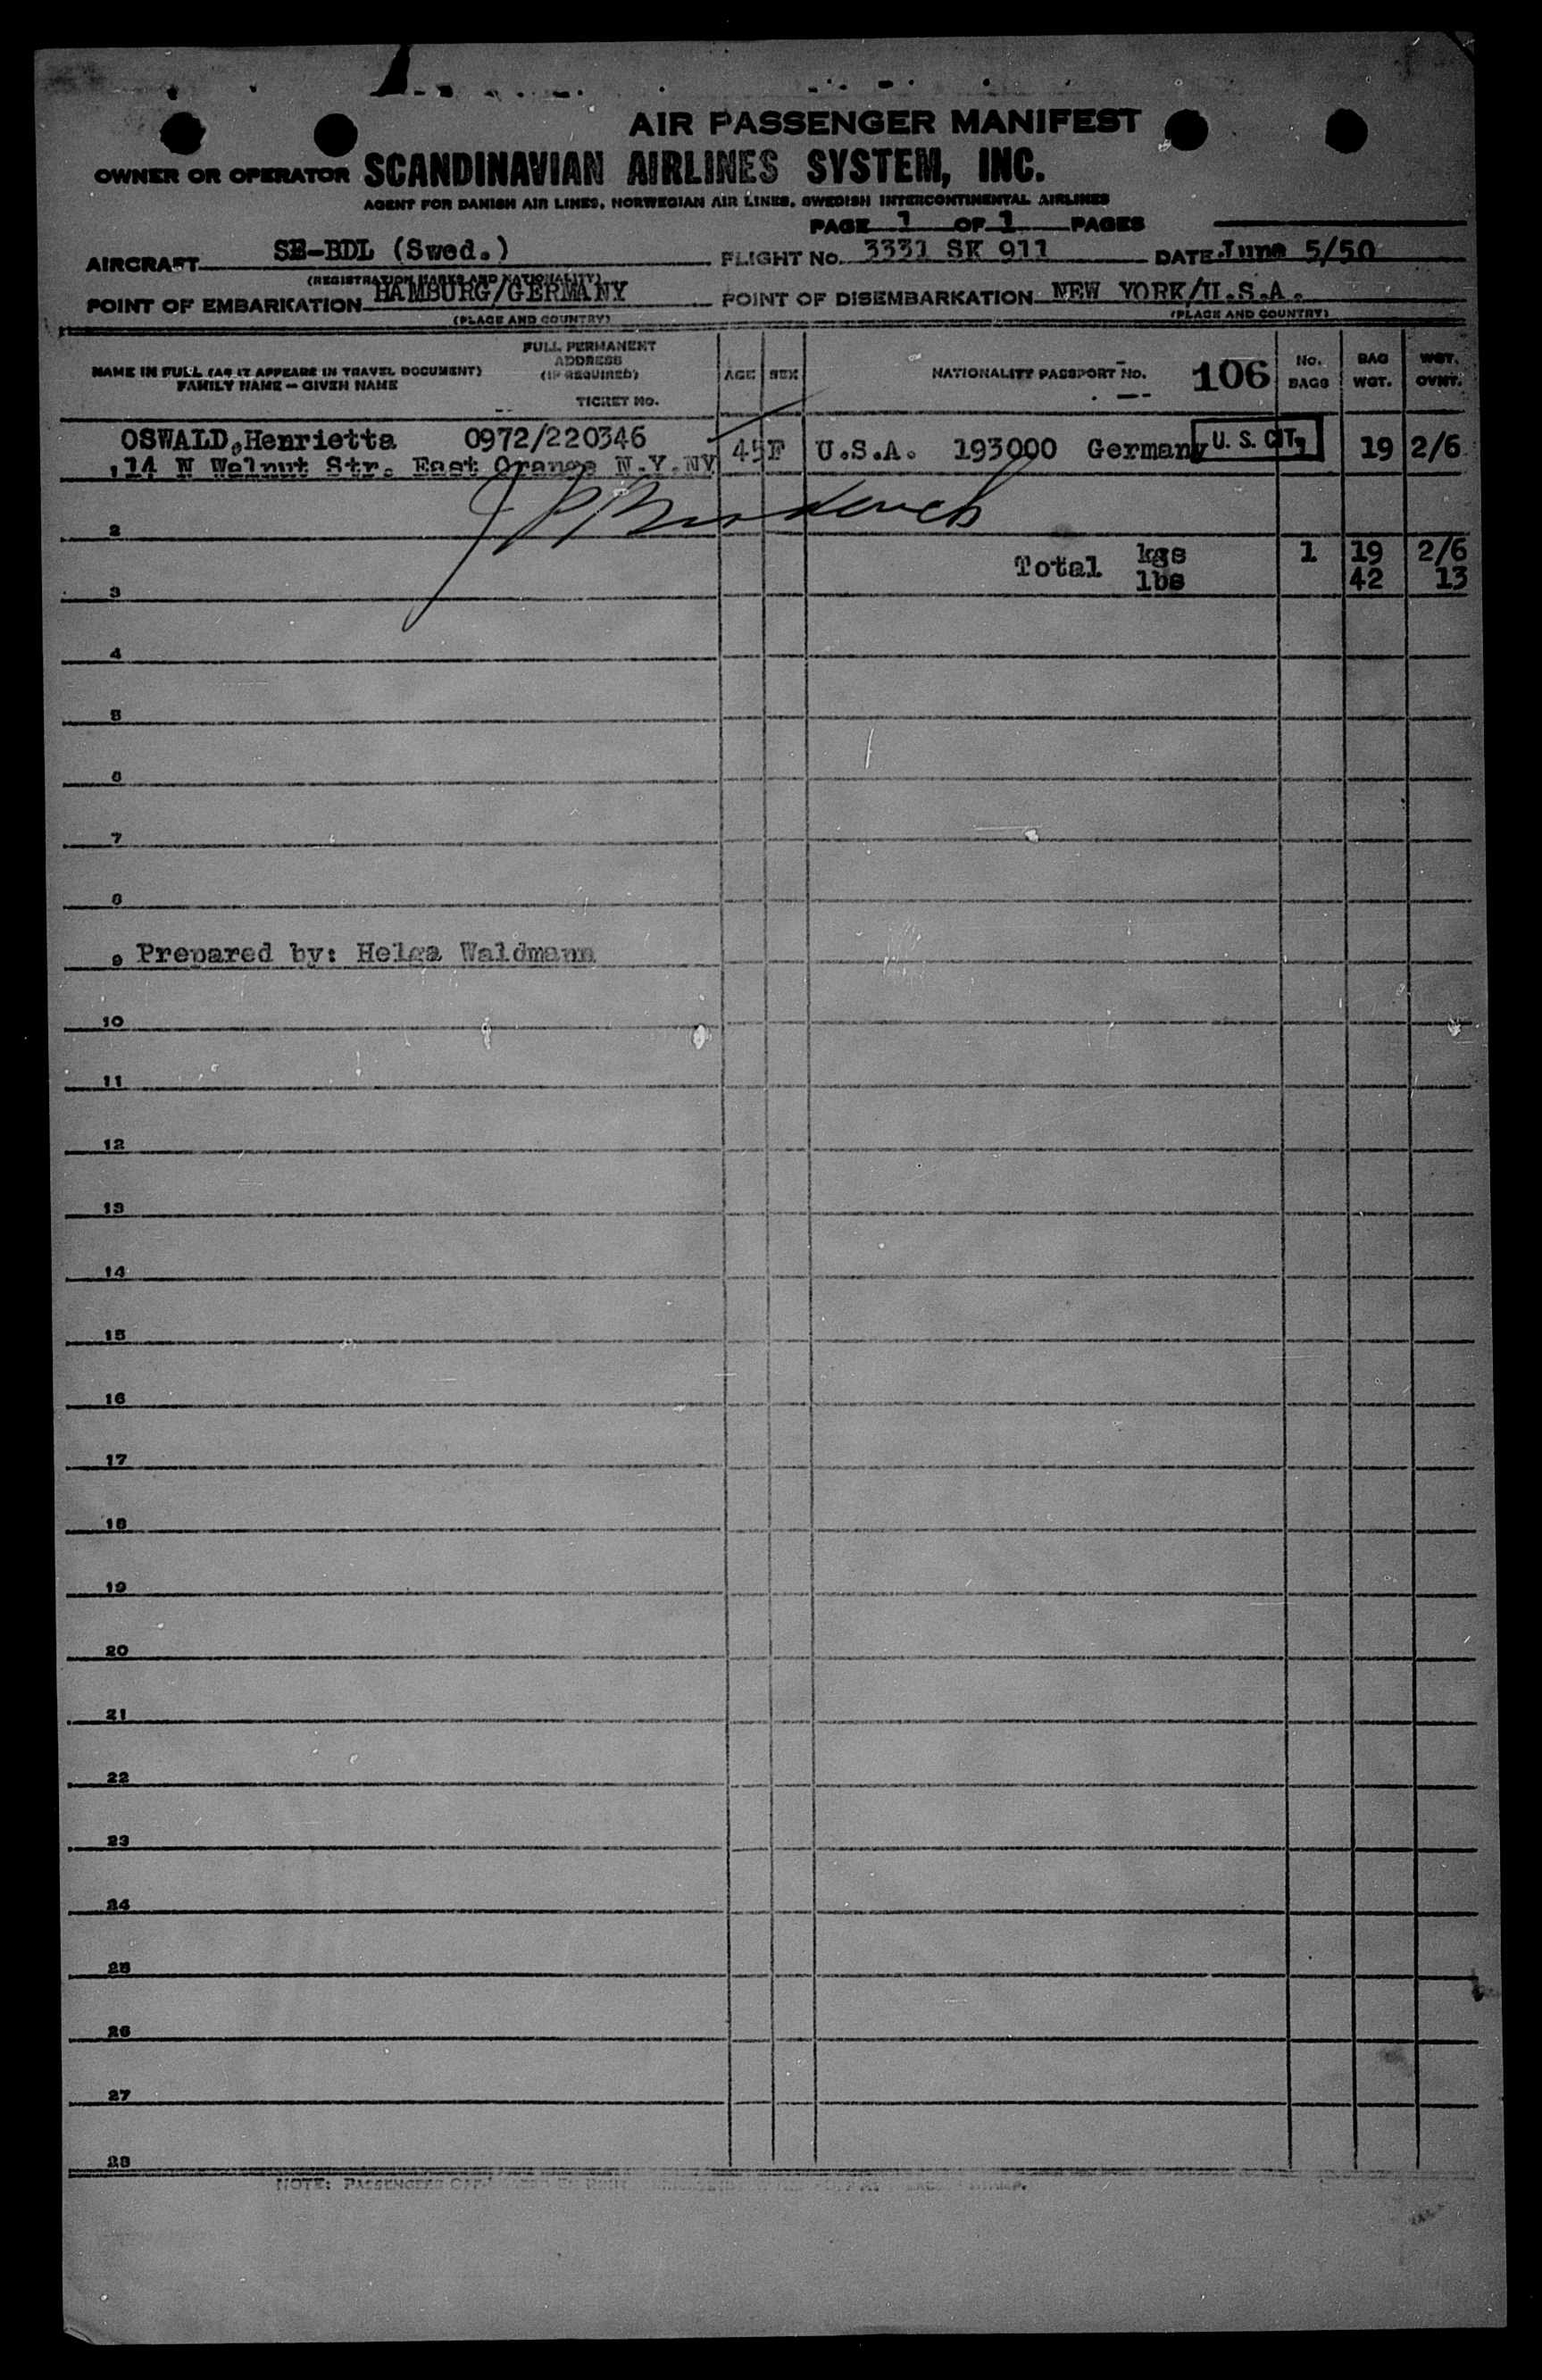 AIR PASSENGER MANIFEST
OWNER OR OPERATOR SCANDINAVIAN AIRLINES SYSTEM, INC.
AGENT FOR DANISH AIR LINES, NORWEGIAN AIR LINES, SWEDISH INTERCONTINENTAL AIRLINES
PAGE 1 OF 1 PAGES
AIRCRAFT SE-BDL (Swed.) FLIGHT No. 3331 SK 911 DATE June 5/50
(REGISTRATION MARKS AND NATIONALITY)
POINT OF EMBARKATION HAMBURG/GERMANY POINT OF DISEMBARKATION NEW YORK/U.S.A.
(PLACE AND COUNTRY) (PLACE AND COUNTRY)
NAME IN FULL (AS IT APPEARS IN TRAVEL DOCUMENT)
FAMILY NAME - GIVEN NAME
FULL PERMANENT
ADDRESS
(IF REQUIRED)
TICKET NO.
AGE SEX NATIONALITY PASSPORT NO. 106
No.
BAGS
BAG
WGT.
WGT.
OVNT.
OSWALD,Henrietta 0972/220346
14 N Walnut Str. East Orange N.Y.NY 45 F U.S.A. 193000 Germany U. S. CIT. 1 19 2/6
2
Total kgs 1 19 2/6
lbs 42 13
3
4
5
6
7
8
9 Prepared by: Helga Waldmann
10
11
12
13
14
15
16
17
18
19
20
21
22
23
24
25
26
27
28
NOTE: PASSENGERS